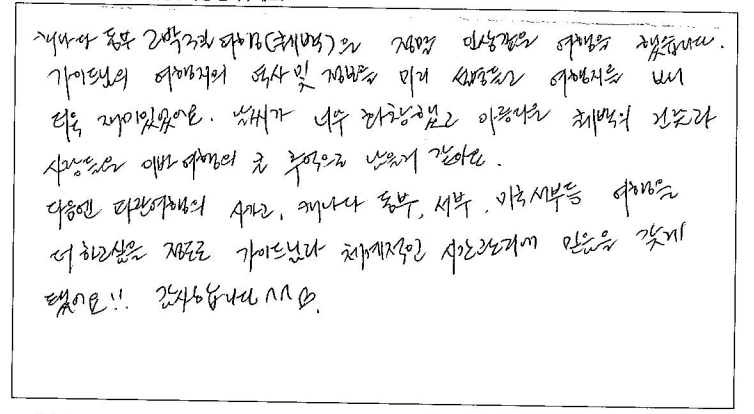 캐나다 동부 2박3일 여행(퀘벡)은 정말 인상깊은 여행을 했습니다.
가이드님의 여행지의 역사 및 정보를 미리 설명듣고 여행지를 보니
더욱 재미있었어요. 날씨가 너무 화창했고 아름다운 퀘벡의 건물과
사람들은 이번 여행의 큰 추억으로 남을거 같아요.
다음엔 타관여행의 캐나다 동부, 서부, 미국서부등 여행을
더 하고싶을 정도로 가이드님과 체계적인 시간관리에 믿음을 갖게
됐어요!! 감사합니다 ^^♡.